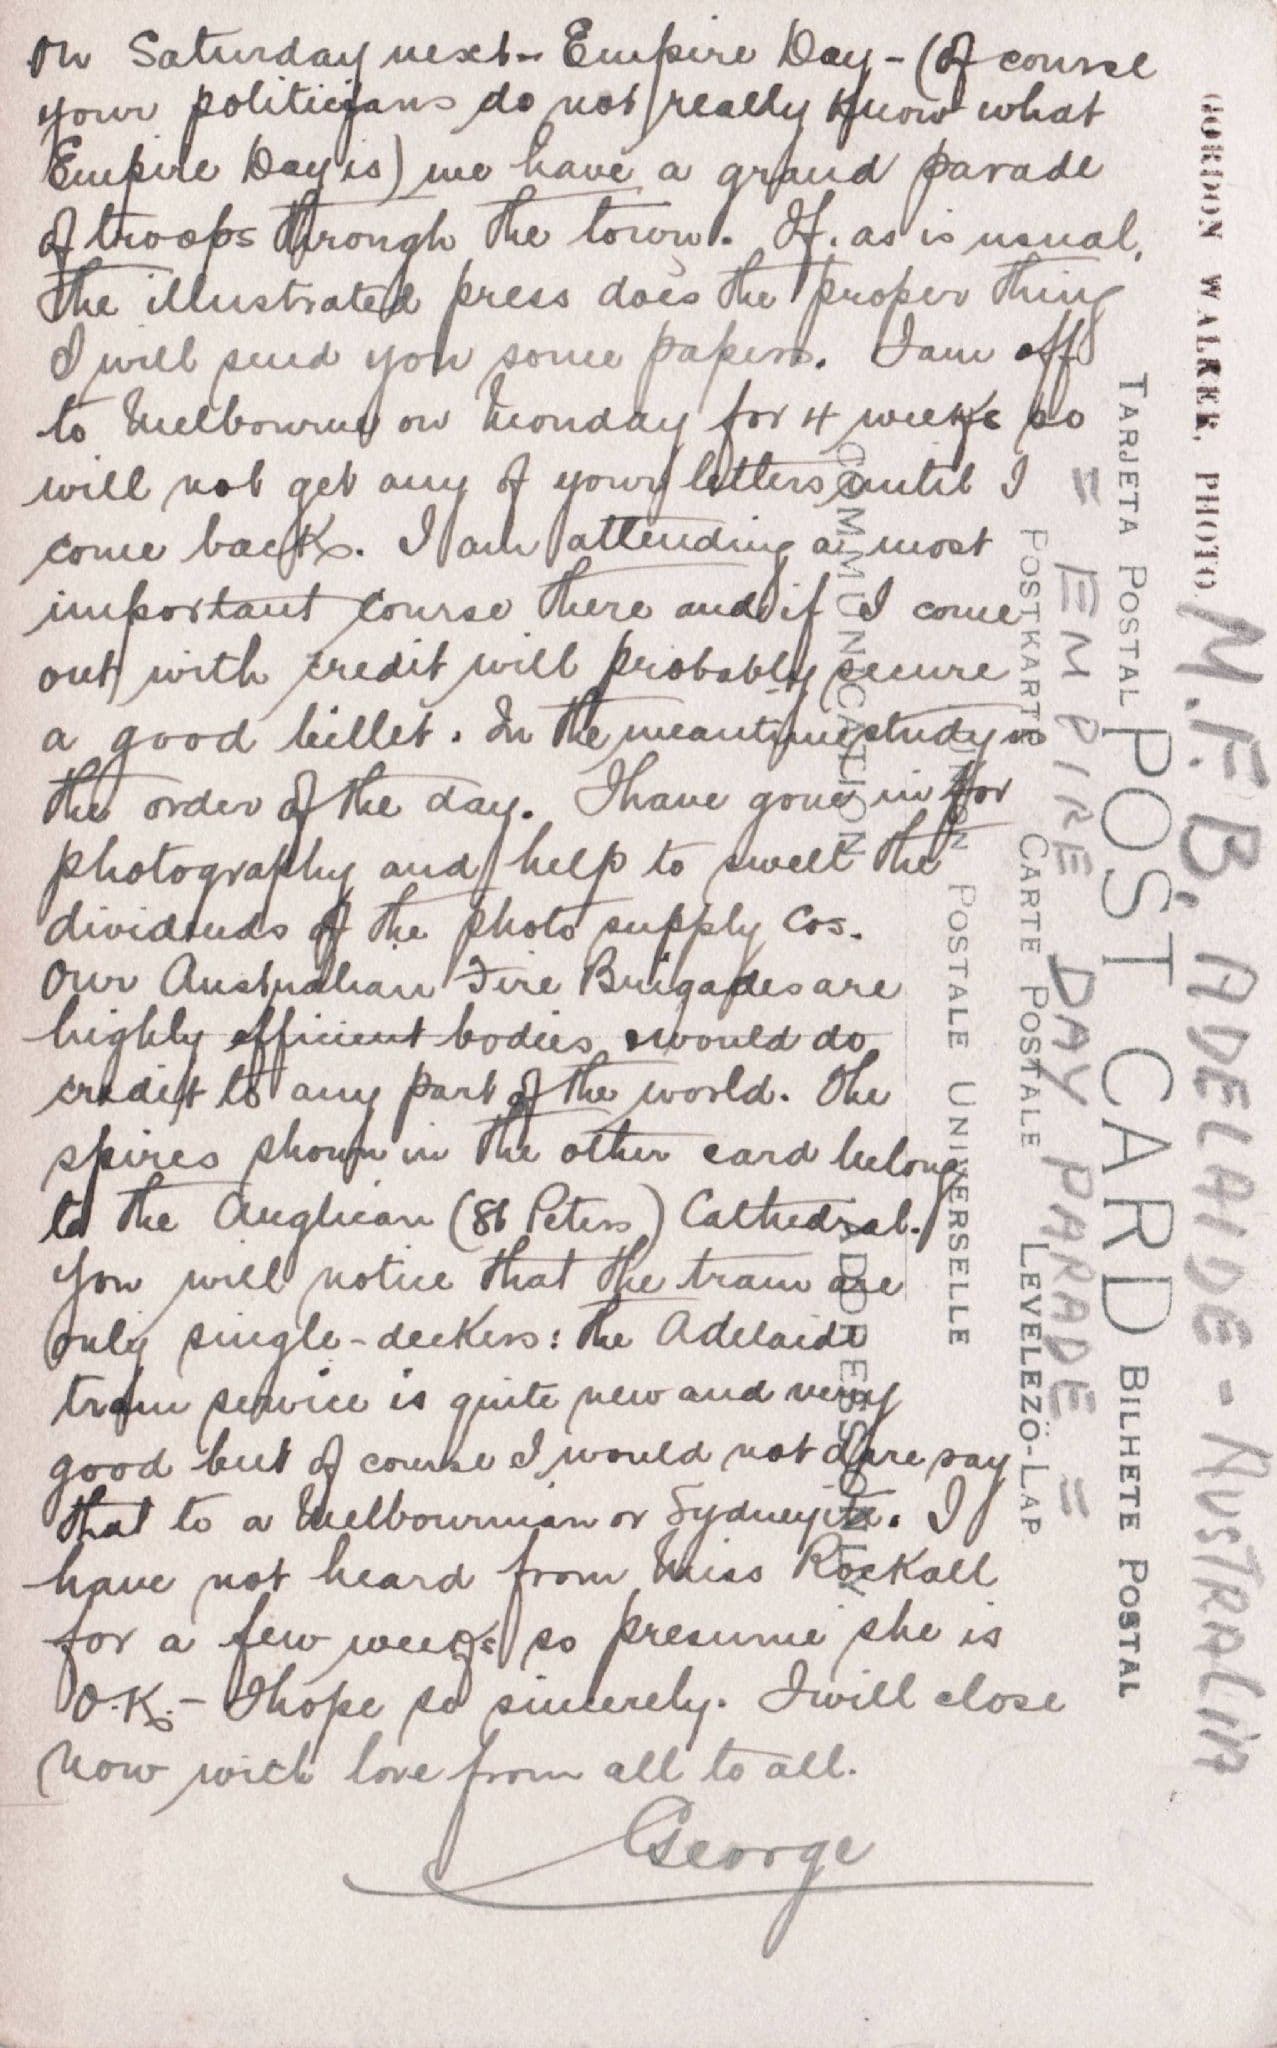 On Saturday next – Empire Day – (of course
your politicians do not really know what
Empire Day is) we have a grand parade
of troops through the town. If, as is usual,
the illustrated press does the proper thing
I will send you some papers. I am off
to Melbourne on Monday for 4 weeks so
will not get any of your letters until I
come back. I am attending a most
important course there and if I come
out with credit will probably secure
a good billet. In the meantime study is
the order of the day. I have gone in for
photography and help to swell the
dividends of the photo supply Cos.
Our Australian Fire Brigades are
highly efficient bodies, would do
credit to any part of the world. The
spires shown in the other card belong
to the Anglican (St Peters) Cathedral.
You will notice that the tram are
only single-deckers: the Adelaide
tram service is quite new and very
good but of course I would not dare say
that to a Melbournian or Sydneyite. I
have not heard from Miss Rockall
for a few weeks so presume she is
O.K. – I hope so sincerely. I will close
now with love from all to all.
George
GORDON WALKER, PHOTO.
M.F.B. ADELAIDE - AUSTRALIA
= EMPIRE DAY PARADE =
TARJETA POSTAL POST CARD BILHETE POSTAL
POSTKARTE CARTE POSTALE LEVELEZÖ-LAP
UNION POSTALE UNIVERSELLE
COMMUNICATION
ADDRESS ONLY